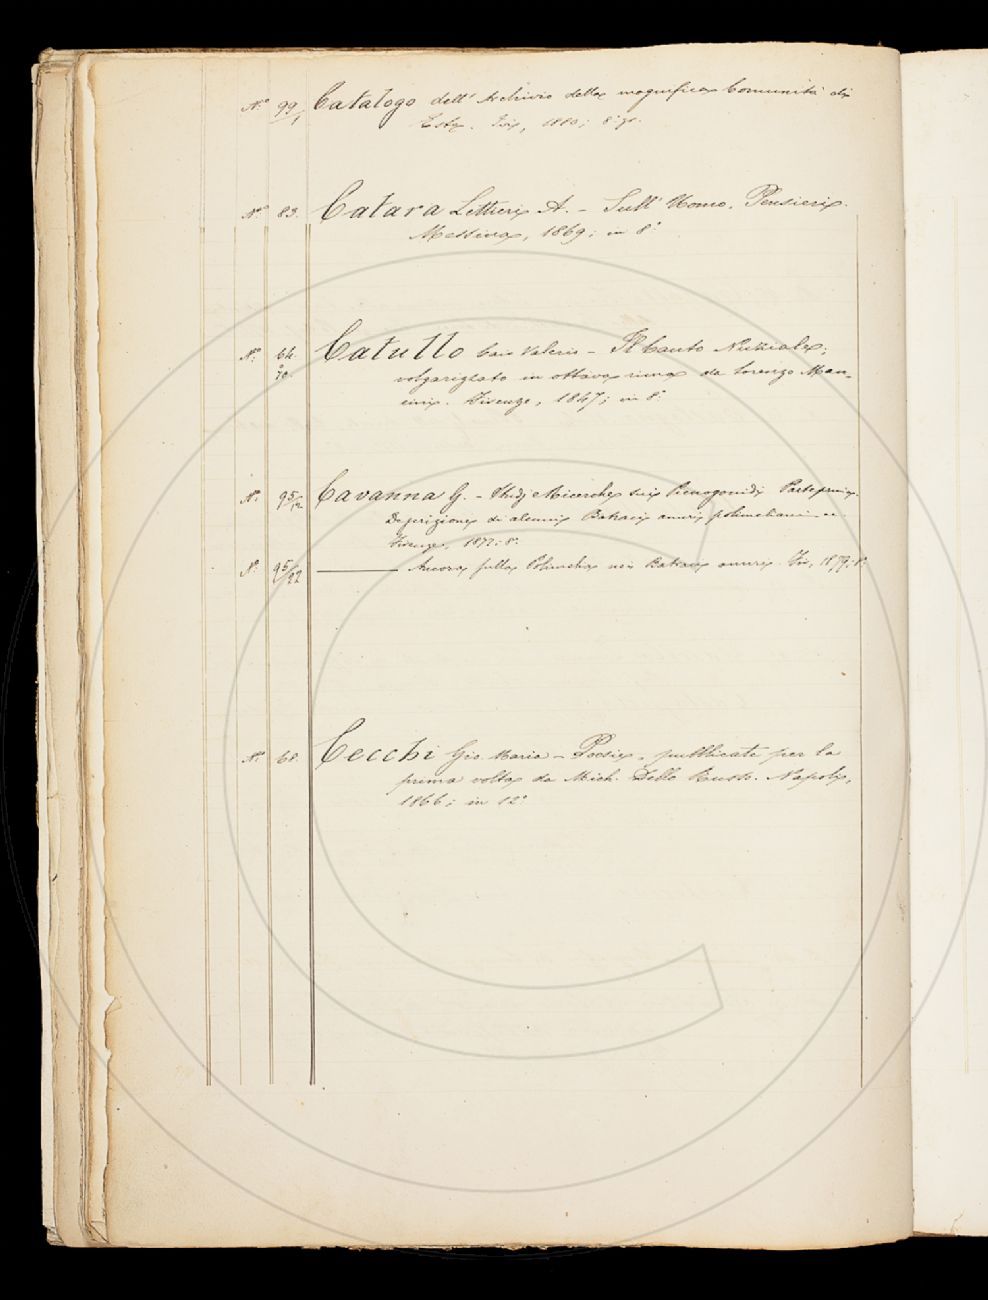 N.º 99/1 Catalogo dell' Archivio della magnifica Comunità di
Este. Ivi, 1880; 8º gr.
N.º 83. Catara Lettieri A. - Sull' Uomo. Pensieri.
Messina, 1869; in 8º
N. 64. Catullo Caio Valerio - Il Canto Nuziale;
70. volgarizzato in ottava rima da Lorenzo Man-
cini. Firenze, 1847; in 8º
N. 95/12 Cavanna G. - Studj e Ricerche sui Picnogonidi Parte prima.
Descrizione di alcuni Batraci anuri polimeliani
Firenze, 1877; 8º
N. 95/22 ——— Ancora sulla Polimelia nei Batraci anuri. Ivi, 1879; 8º
N. 68. Cecchi Gio. Maria - Poesie, pubblicate per la
prima volta da Mich. Dello Russo. Napoli,
1866; in 12º